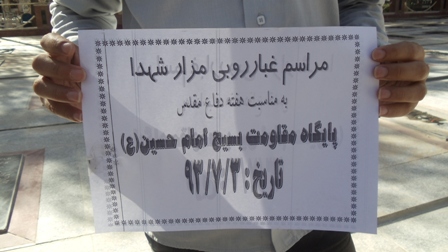 مراسم غبارروبی مزار شهدا
به مناسبت هفته دفاع مقدس
پایگاه مقاومت بسیج امام حسین(ع)
تاریخ : ۹۳/۷/۳